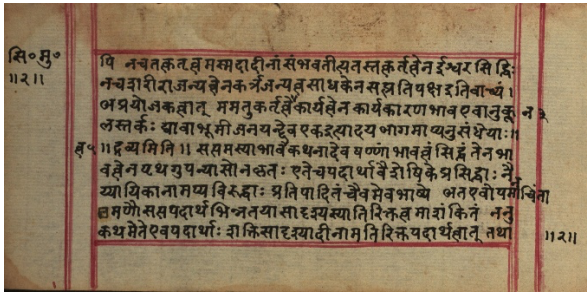 सि॰ मु॰
॥२॥
पि नचतत्कर्तृत्वमस्मदादीनांसंभवतीत्यतस्तत्कर्तृत्वेनईश्वरसिद्धिः
नचशरीराजन्यत्वेनकर्त्रजन्यत्वसाधकेनसत्प्रतिपक्षइतिवाच्यं।
अप्रयोजकत्वात् ममतुकर्तृत्वेकार्यत्वेनकार्यकारणभावएवानुकू
लस्तर्कः द्यावाभूमीजनयन्देवएकइत्यादयआगमाअप्यनुसंधेयाः॥
॥द्रव्यमिति॥ सप्तमस्याभावत्वकथनादेवषण्णांभावत्वंसिद्धंतेनभा
वत्वेनपृथगुपन्यासोनकृतः एतेचपदार्थावैशेषिकेप्रसिद्धाः नै
य्यायिकानामप्यविरुद्धाः प्रतिपादितंचैवमेवभाष्ये अतएवोपमाचिंता
मणौसप्तपदार्थभिन्नतयासादृश्यस्यातिरिक्तत्वमाशंकितं ननु
कथमेतेएवपदार्थाः शक्तिसादृश्यादीनामतिरिक्तपदार्थत्वात् तथा
॥२॥